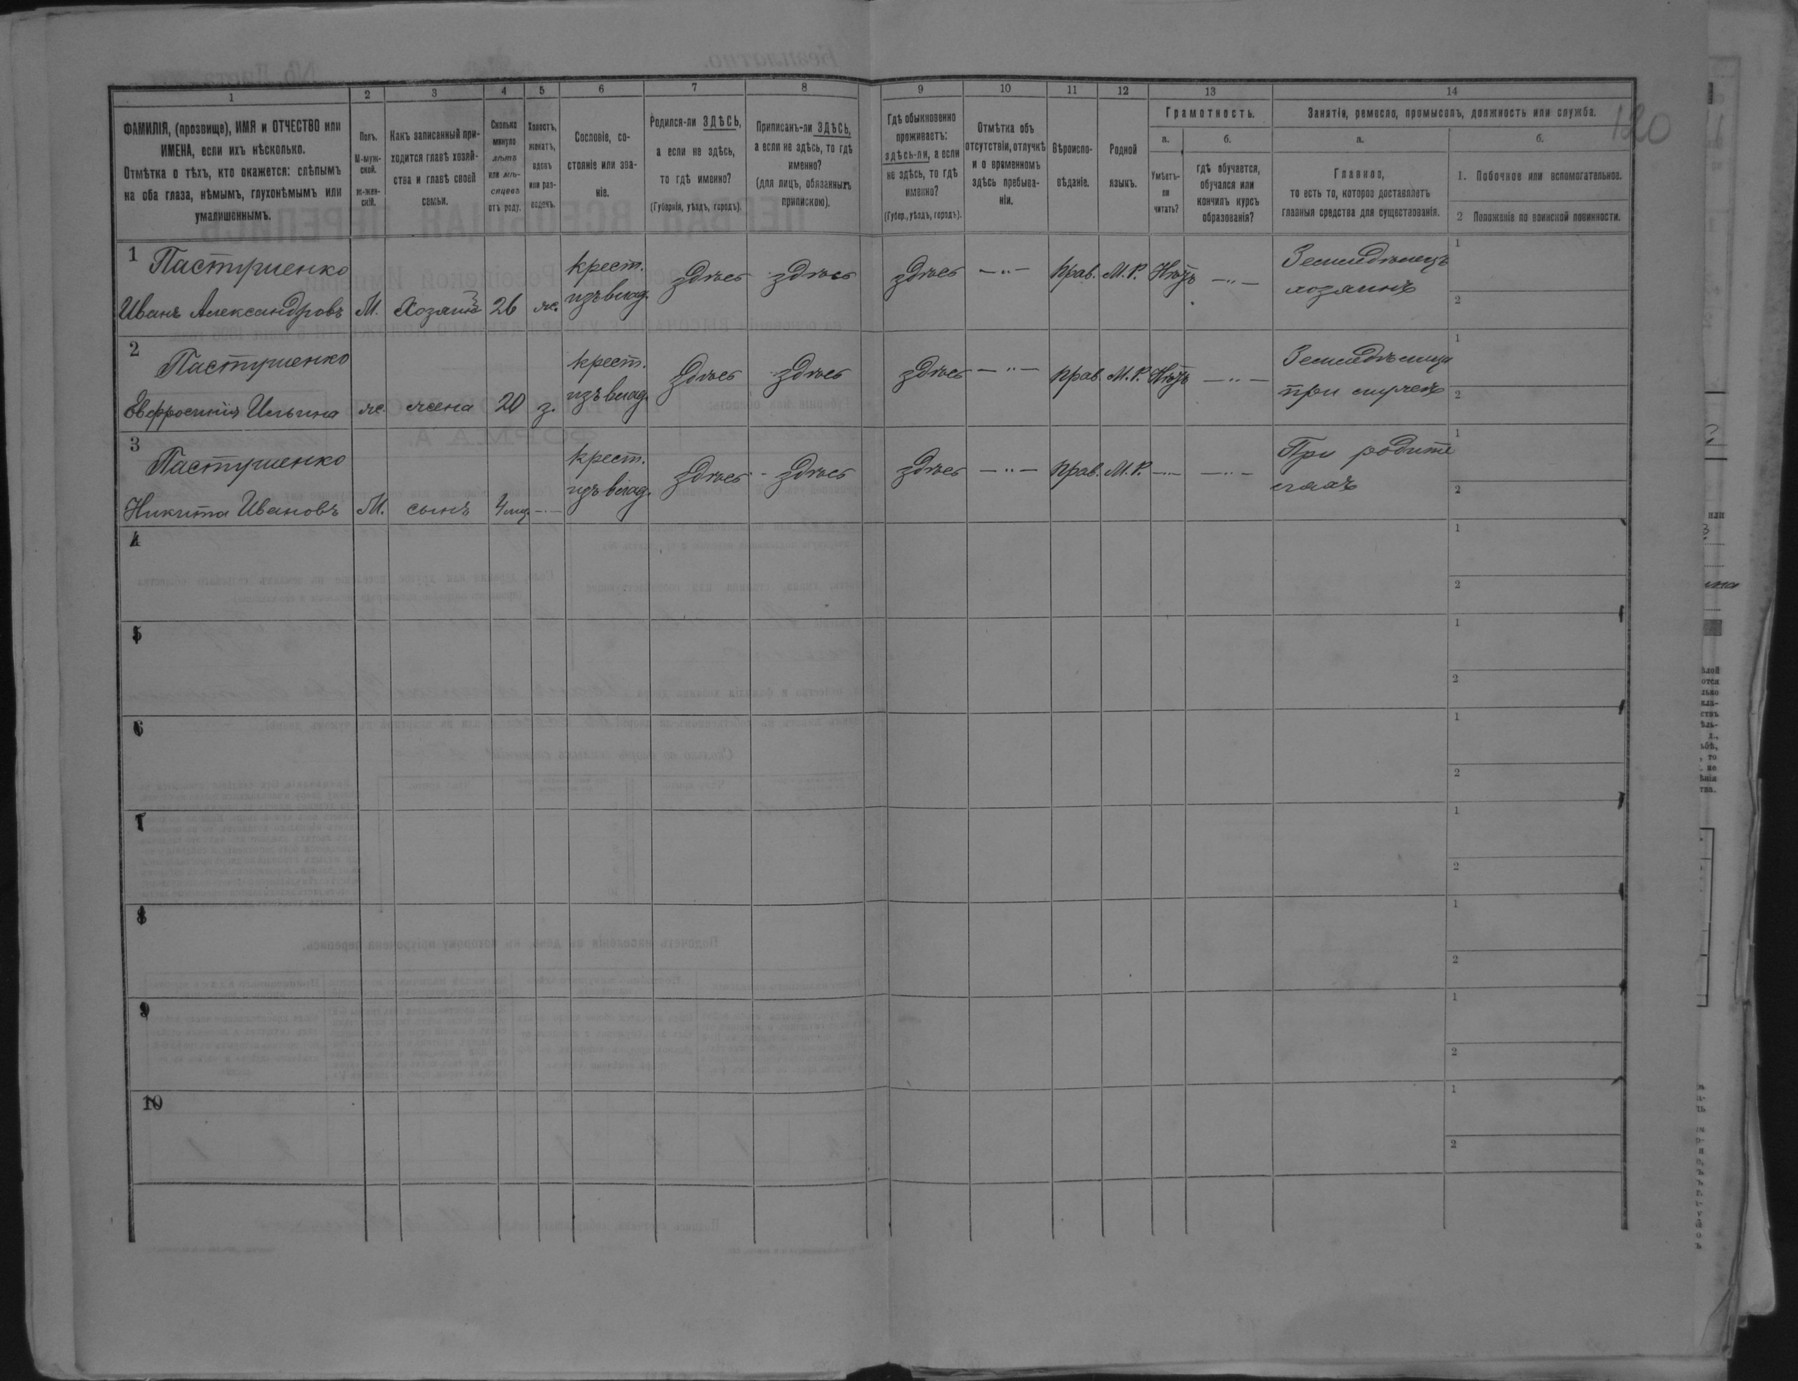 120
1 2 3 4 5 6 7 8 9 10 11 12 13 14
ФАМИЛІЯ, (прозвище), ИМЯ и ОТЧЕСТВО или
ИМЕНА, если ихъ нѣсколько.
Отмѣтка о тѣхъ, кто окажется: слѣпымъ
на оба глаза, нѣмымъ, глухонѣмымъ или
умалишеннымъ.
Полъ.
М-муж-
ской.
ж-жен-
скій.
Какъ записанный при-
ходится главѣ хозяй-
ства и главѣ своей
семьи.
Сколько
минуло
лѣтъ
или мѣ-
сяцевъ
отъ роду.
Холостъ,
женатъ,
вдовъ
или раз-
веденъ.
Сословіе, со-
стояніе или зва-
ніе.
Родился-ли ЗДѢСЬ,
а если не здѣсь,
то гдѣ именно?
(Губернія, уѣздъ, городъ).
Приписанъ-ли ЗДѢСЬ,
а если не здѣсь, то гдѣ
именно?
(для лицъ, обязанныхъ
припискою).
Гдѣ обыкновенно
проживаетъ:
здѣсь-ли, а если
не здѣсь, то гдѣ
именно?
(Губер., уѣздъ, городъ).
Отмѣтка объ
отсутствіи, отлучкѣ
и о временномъ
здѣсь пребыва-
ніи.
Вѣроиспо-
вѣданіе.
Родной
языкъ.
Грамотность.
а.
Умѣетъ-
ли
читать?
б.
гдѣ обучается,
обучался или
кончилъ курсъ
образованія?
Занятіе, ремесло, промыселъ, должность или служба.
а.
Главное,
то есть то, которое доставляетъ
главныя средства для существованія.
б.
1. Побочное или вспомогательное.
2 Положеніе по воинской повинности.
1 Пастушенко крест. здѣсь здѣсь здѣсь —"— Прав. М.Р. Нѣтъ —"— Земледѣлецъ 1
Иванъ Александровъ М. Хозяинъ 26 ж. изъ влад. хозяинъ 2
2 Пастушенко крест. здѣсь здѣсь здѣсь —"— Прав. М.Р. Нѣтъ —"— 1
Евфросинія Ильина ж. жена 20 з. изъ влад. при мужѣ 2
3 Пастушенко крест. здѣсь здѣсь здѣсь —"— Прав. М.Р. —"— —"— При родите 1
Никита Ивановъ М. сынъ 4 мѣс. —"— изъ влад. ляхъ 2
4 1
2
5 1
2
6 1
2
7 1
2
8 1
2
9 1
2
10 1
2